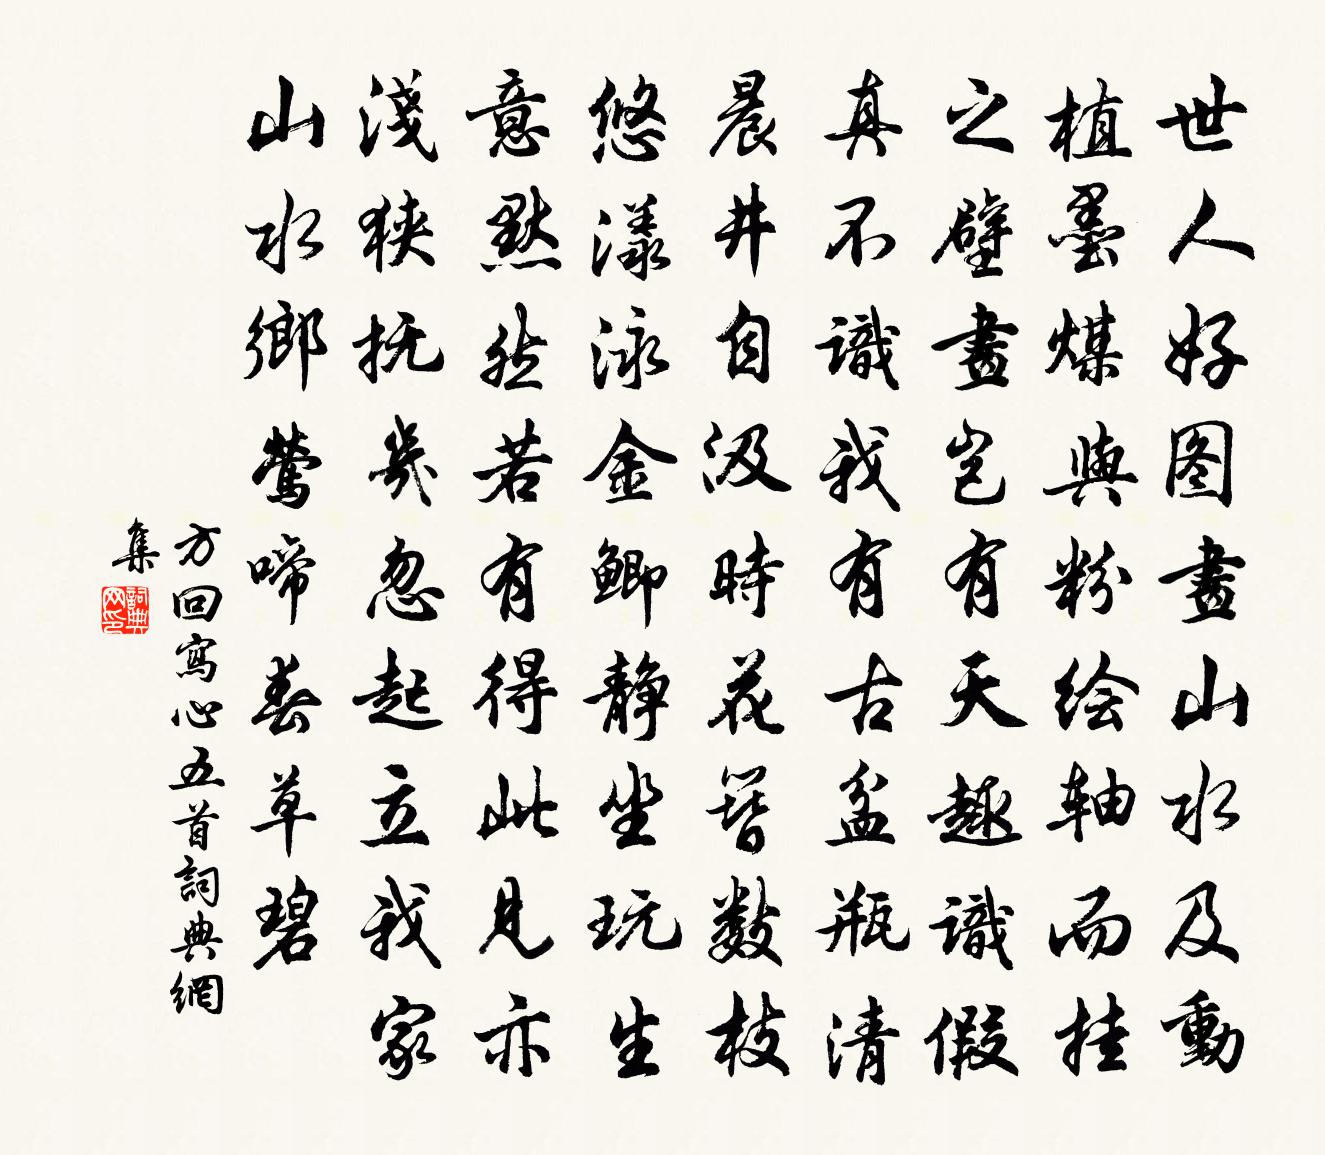 世人好图畫山水及動
植墨煤與粉绘轴而挂
之壁畫岂有天趣識假
真不識我有古盆瓶清
晨井自汲時花簪数枝
悠漾泳金鲫静坐玩生
意默然若有得此見亦
淺狹抚几忽起立我家
山水鄉莺啼春草碧
方回寫心五首詞典網
集
詞典網印